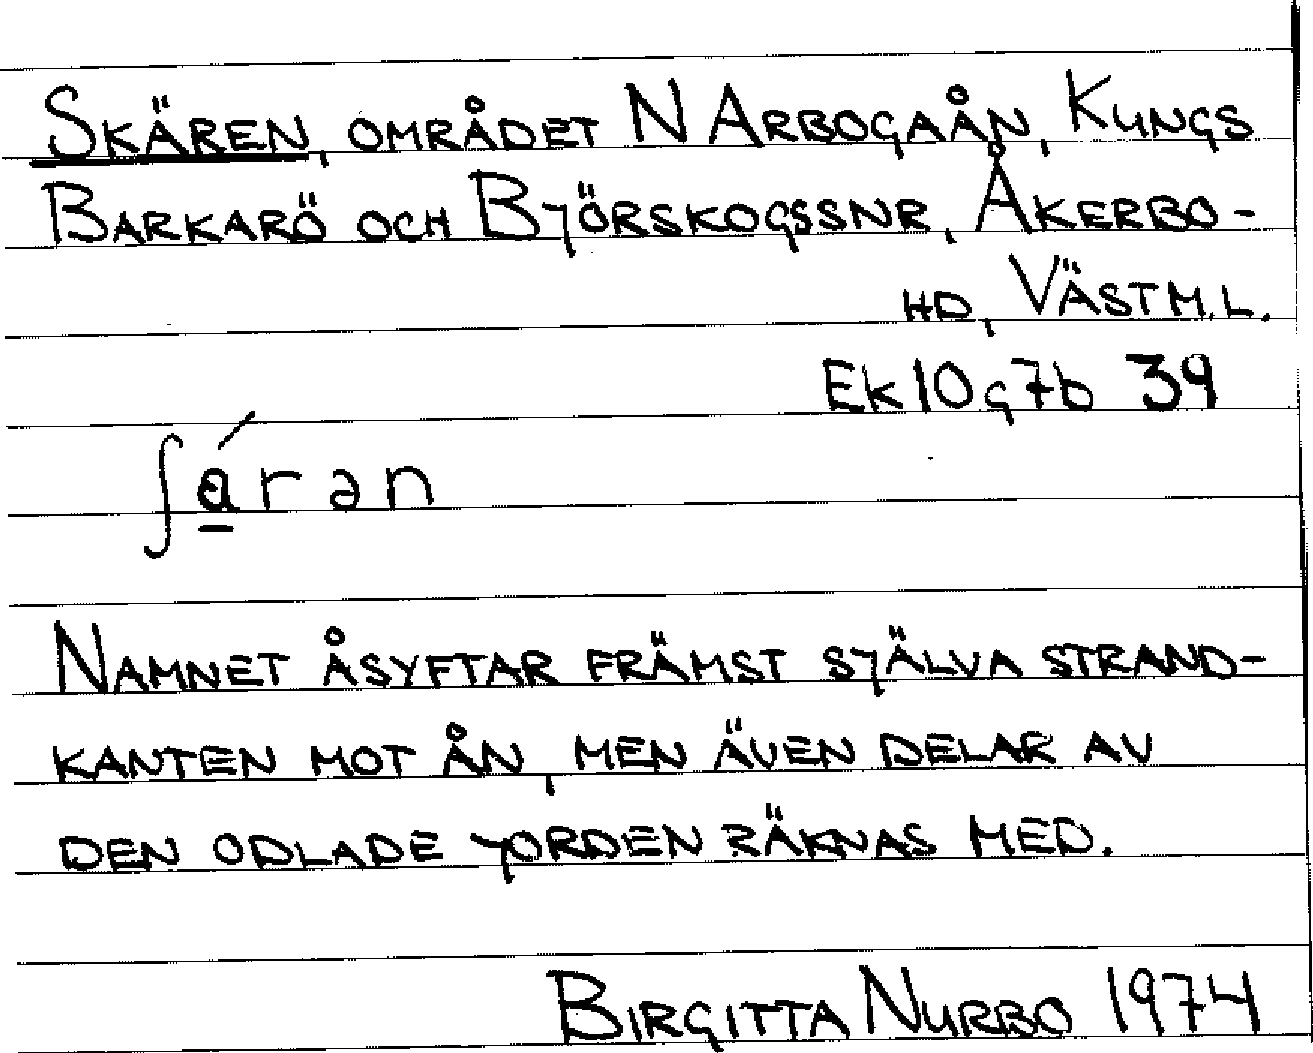 SKÄREN, OMRÅDET N ARBOGAÅN, KUNGS
BARKARÖ OCH BJÖRSKOGSSNR, ÅKERBO-
HD, VÄSTM.L.
Ek 10g7b 39
ʃá̱rən
NAMNET ÅSYFTAR FRÄMST SJÄLVA STRAND-
KANTEN MOT ÅN, MEN ÄVEN DELAR AV
DEN ODLADE JORDEN RÄKNAS MED.
BIRGITTA NURBO 1974